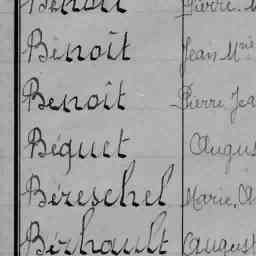 Benoit Pierre
Bénoît Jean Mrie
Benoît Pierre Jea
Béquet Augus
Béreschel Marie, A
Bérhault August